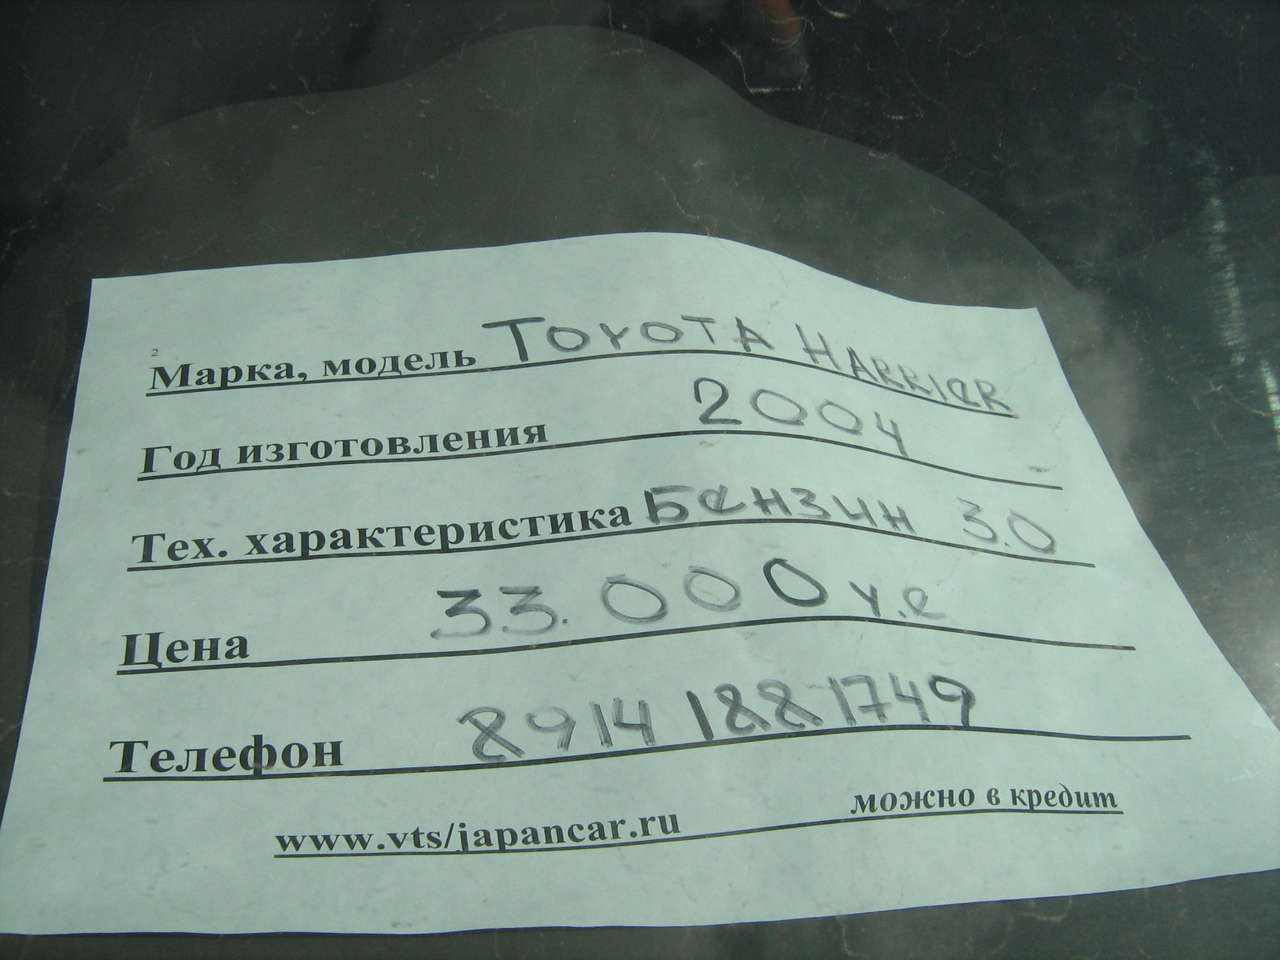 2
Марка, модель TOYOTA HARRIeR
Год изготовления 2004
Тех. характеристика Бензин 3.0
Цена 33.000 у.е
Телефон 8914 1881749
www.vts/japancar.ru можно в кредит